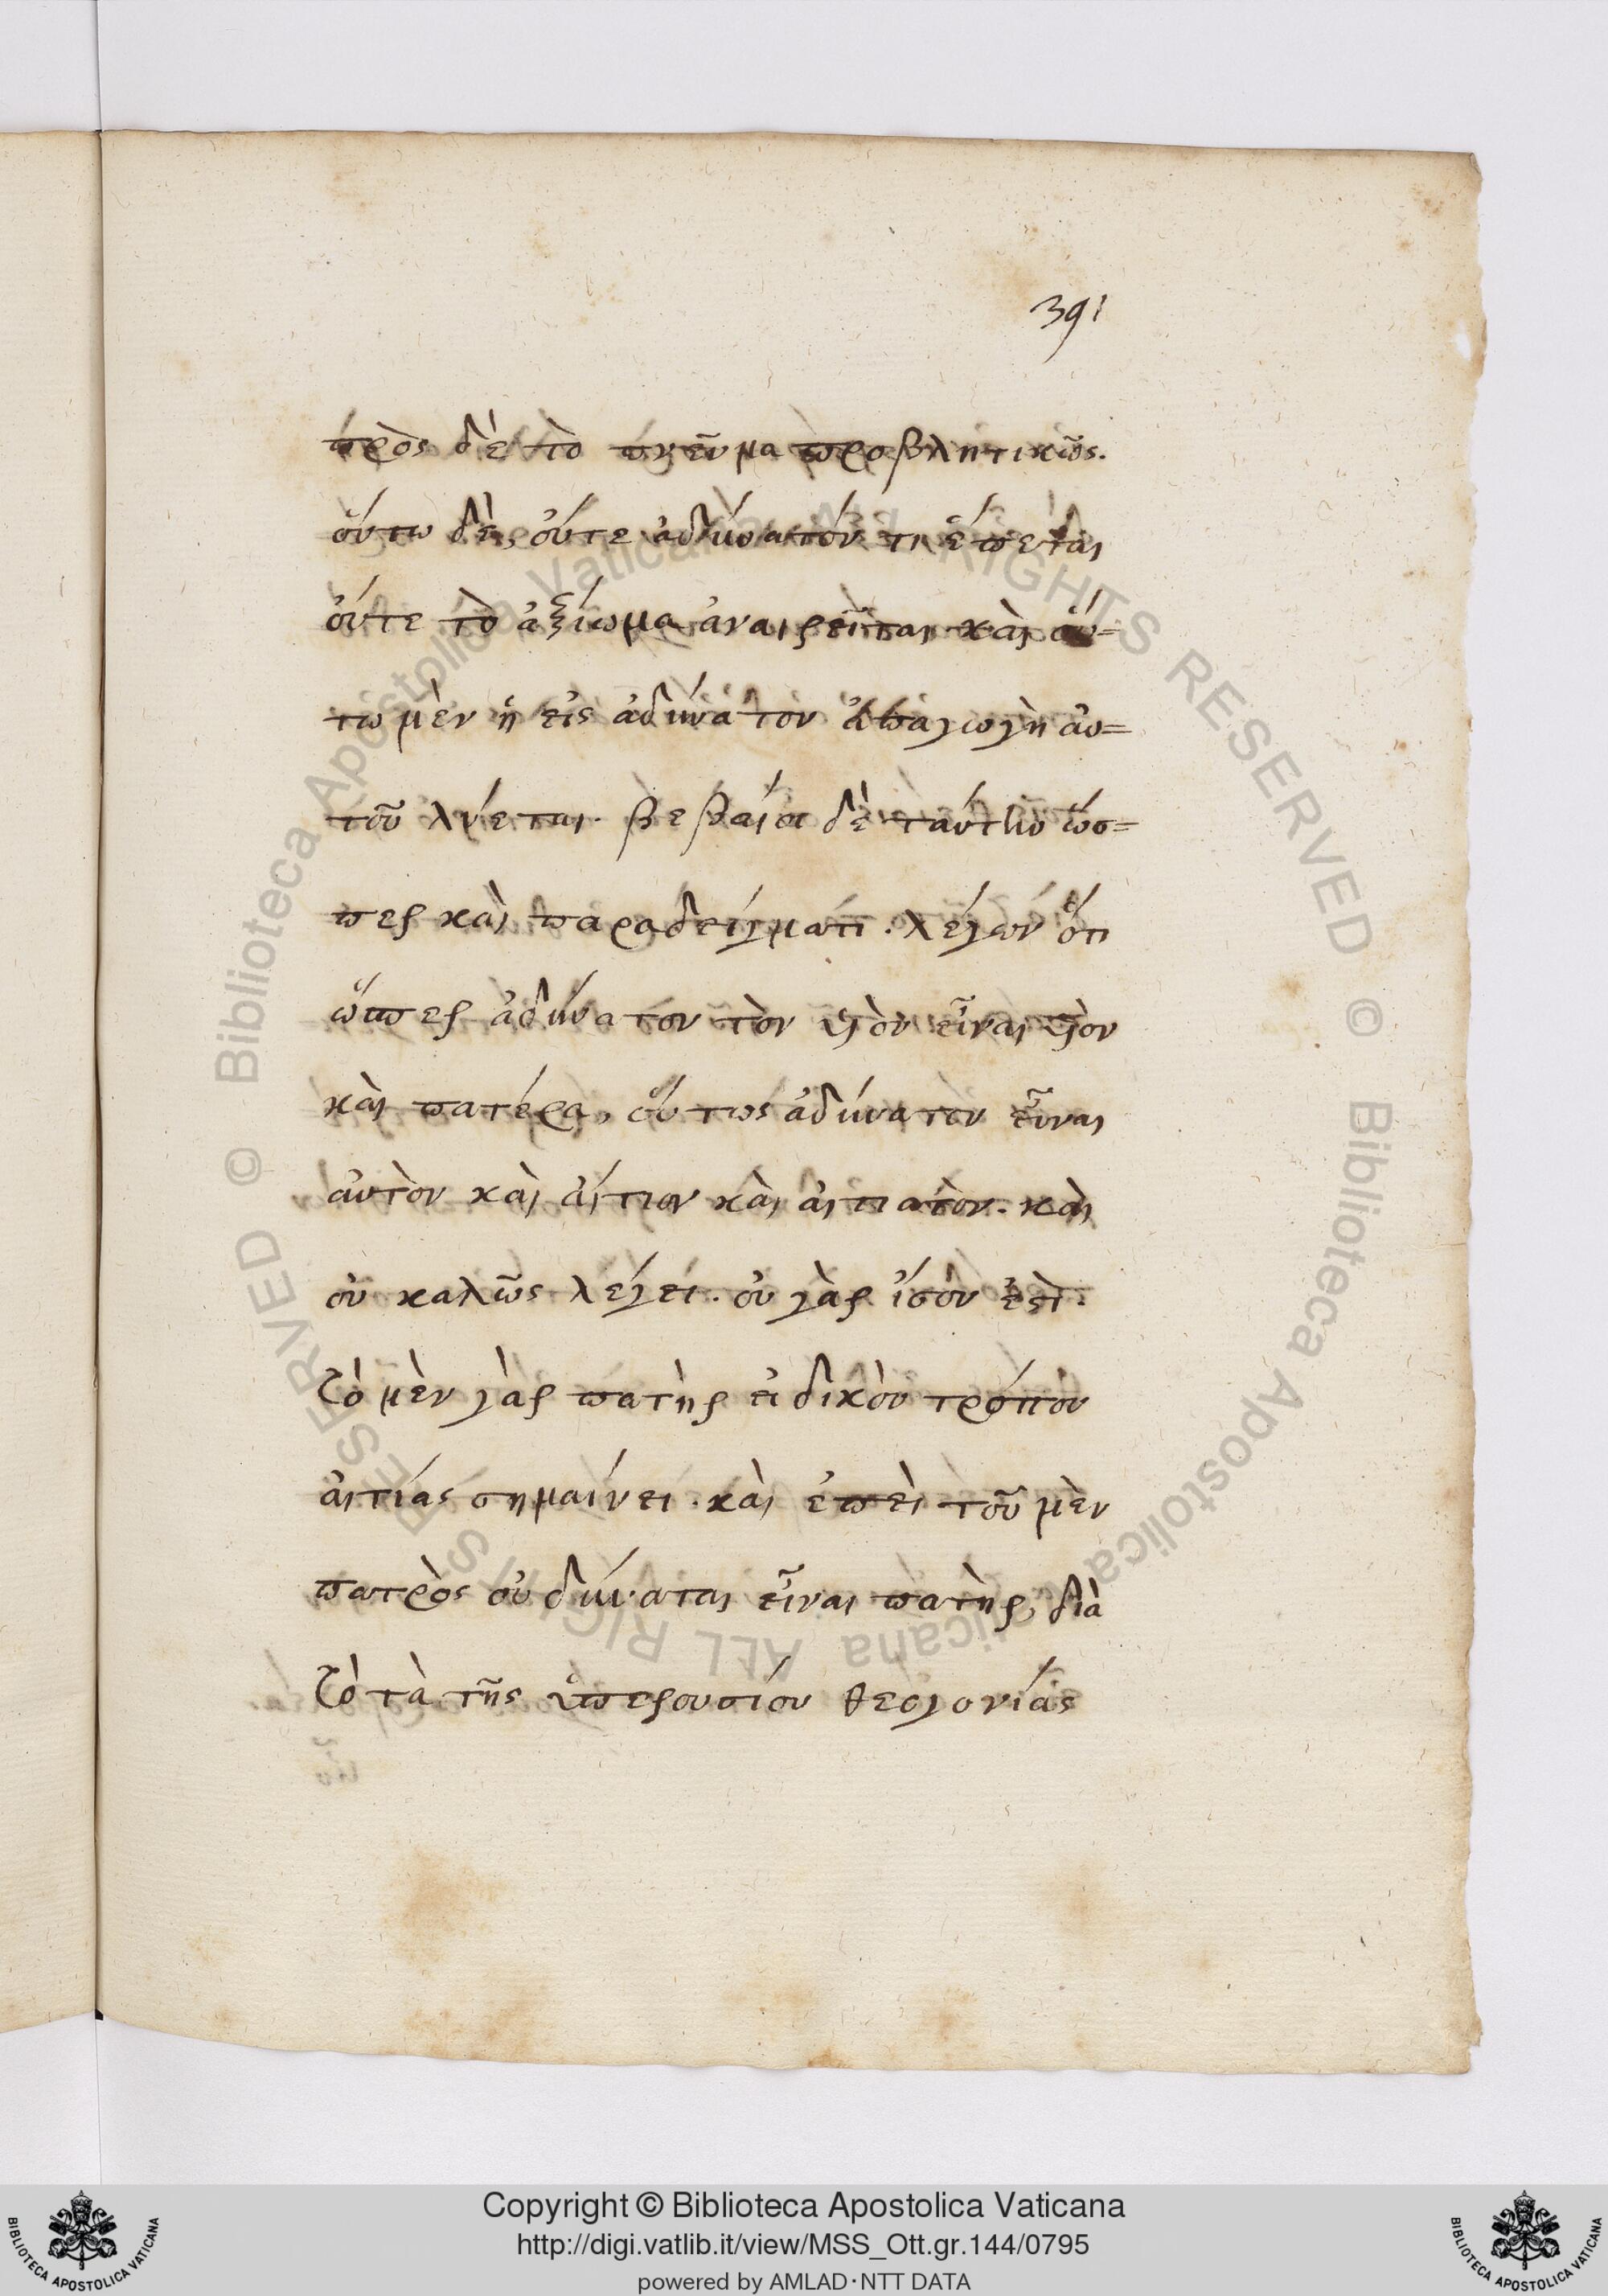 391
πρὸς δὲ τὸ πνεῦμα προβλητικῶς.
οὕτω δὲ, οὔτε ἀδύνατόν τι ἕπεται
οὔτε τὸ ἀξίωμα ἀναιρεῖται καὶ οὕ=
τω μὲν ἡ εἰς ἀδύνατον ἀπαγωγὴ αὐ=
τοῦ λύεται. βεβαιοῖ δὲ ταύτην ὥσ=
περ καὶ παραδείγματι. λέγων ὅτι
ὥσπερ ἀδύνατον τὸν υἱὸν εἶναι υἱὸν
καὶ πατέρα, οὕτως ἀδύνατον εἶναι
αὐτὸν καὶ αἴτιον καὶ αἰτιατὸν. καὶ
οὐ καλῶς λέγει. οὐ γὰρ ἴσον ἐστὶ.
τὸ μὲν γὰρ πατὴρ εἰδικὸν τρόπον
αἰτίας σημαίνει. καὶ ἐπεὶ τοῦ μὲν
πατρὸς οὐ δύναται εἶναι πατὴρ, διὰ
τὸ τὰ τῆς ὑπερουσίου θεογονίας
Copyright © Biblioteca Apostolica Vaticana
http://digi.vatlib.it/view/MSS_Ott.gr.144/0795
powered by AMLAD·NTT DATA
BIBLIOTECA APOSTOLICA VATICANA
BIBLIOTECA APOSTOLICA VATICANA
© Biblioteca Apostolica Vaticana ALL RIGHTS RESERVED © Biblioteca Apostolica Vaticana ALL RIGHTS RESERVED